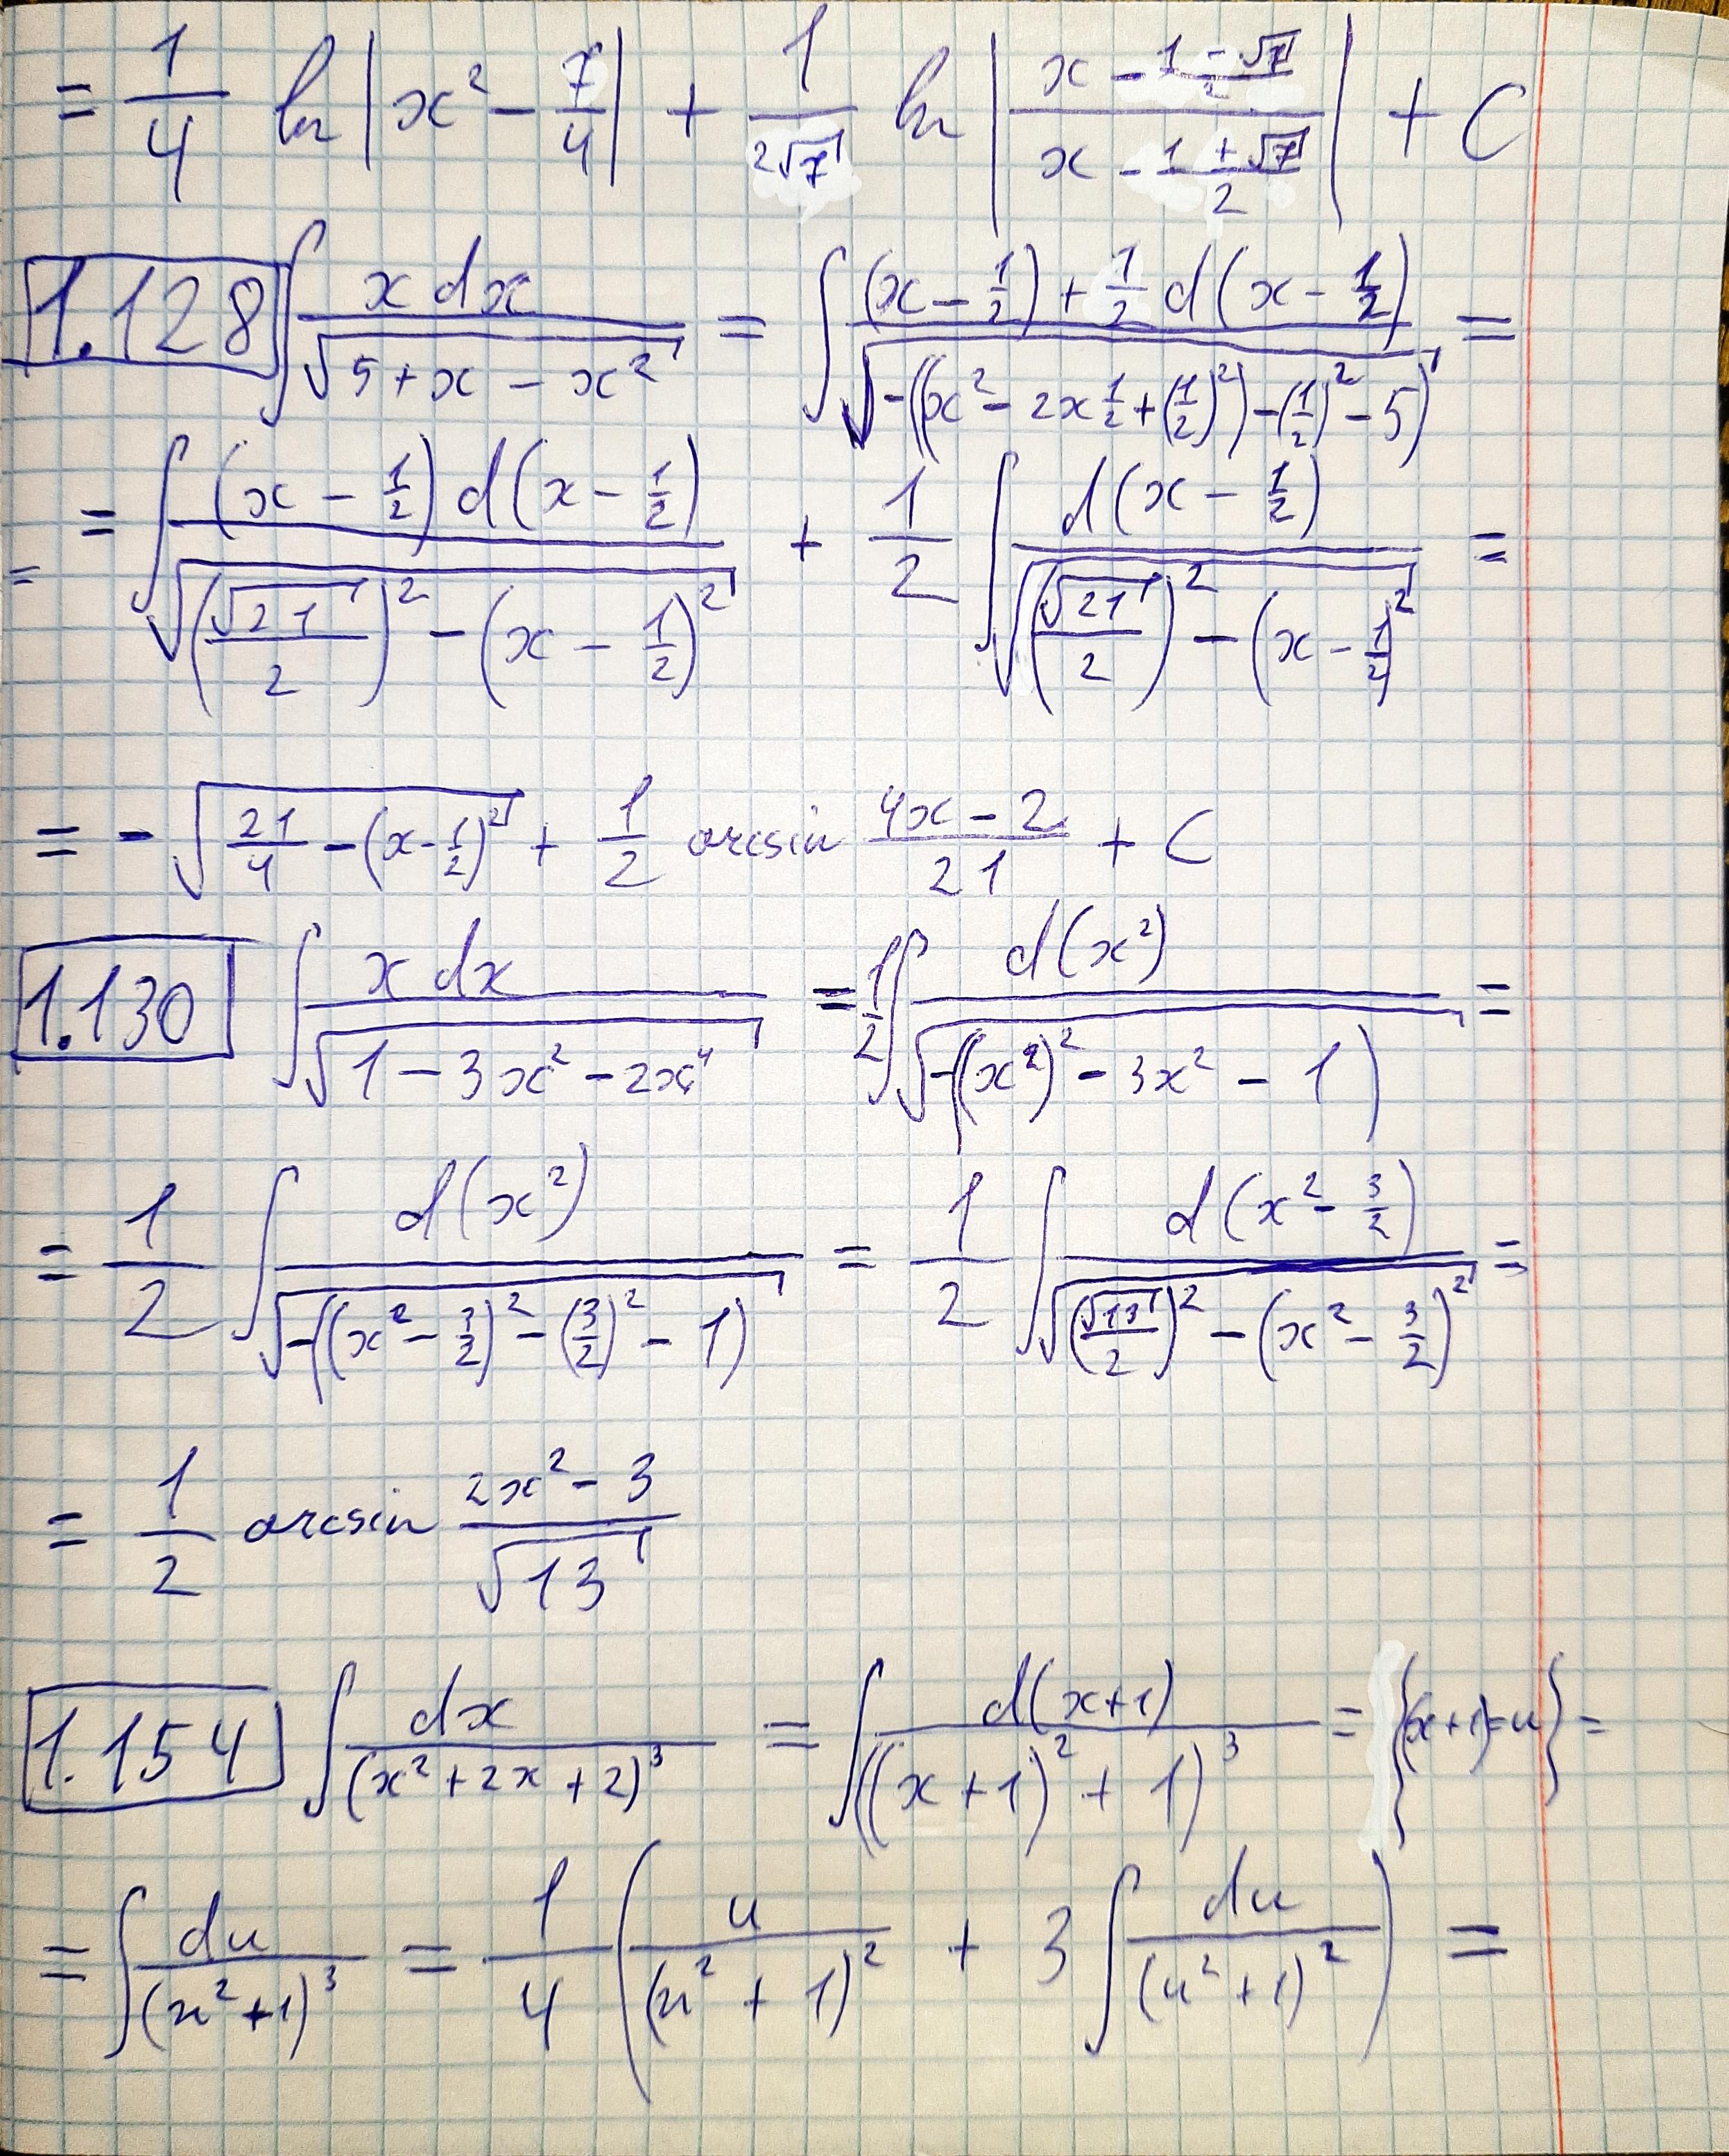 = 1/4 ln |x² - 7/4| + 1/(2√7) ln |(x - (1 - √7)/2)/(x - (1 + √7)/2)| + C
1.128 ∫ x dx/√(5 + x - x²) = ∫ ((x - 1/2) + 1/2 d(x - 1/2))/√(-((x² - 2x 1/2 + (1/2)²) - (1/2)² - 5)) =
= = ∫ (x - 1/2) d(x - 1/2)/√((√21/2)² - (x - 1/2)²) + 1/2 ∫ d(x - 1/2)/√((√21/2)² - (x - 1/2)²) =
= - √(21/4 - (x - 1/2)²) + 1/2 arcsin (4x - 2)/21 + C
1.130 ∫ x dx/√(1 - 3x² - 2x⁴) = 1/2 ∫ d(x²)/√(-((x²)² - 3x² - 1)) =
= 1/2 ∫ d(x²)/√(-((x² - 3/2)² - (3/2)² - 1)) = 1/2 ∫ d(x² - 3/2)/√((√13/2)² - (x² - 3/2)²) =
= 1/2 arcsin (2x² - 3)/√13
1.154 ∫ dx/(x² + 2x + 2)³ = ∫ d(x+1)/((x + 1)² + 1)³ = {(x+1)=u} =
= ∫ du/(u² + 1)³ = 1/4 (u/(u² + 1)² + 3 ∫ du/(u² + 1)²) =